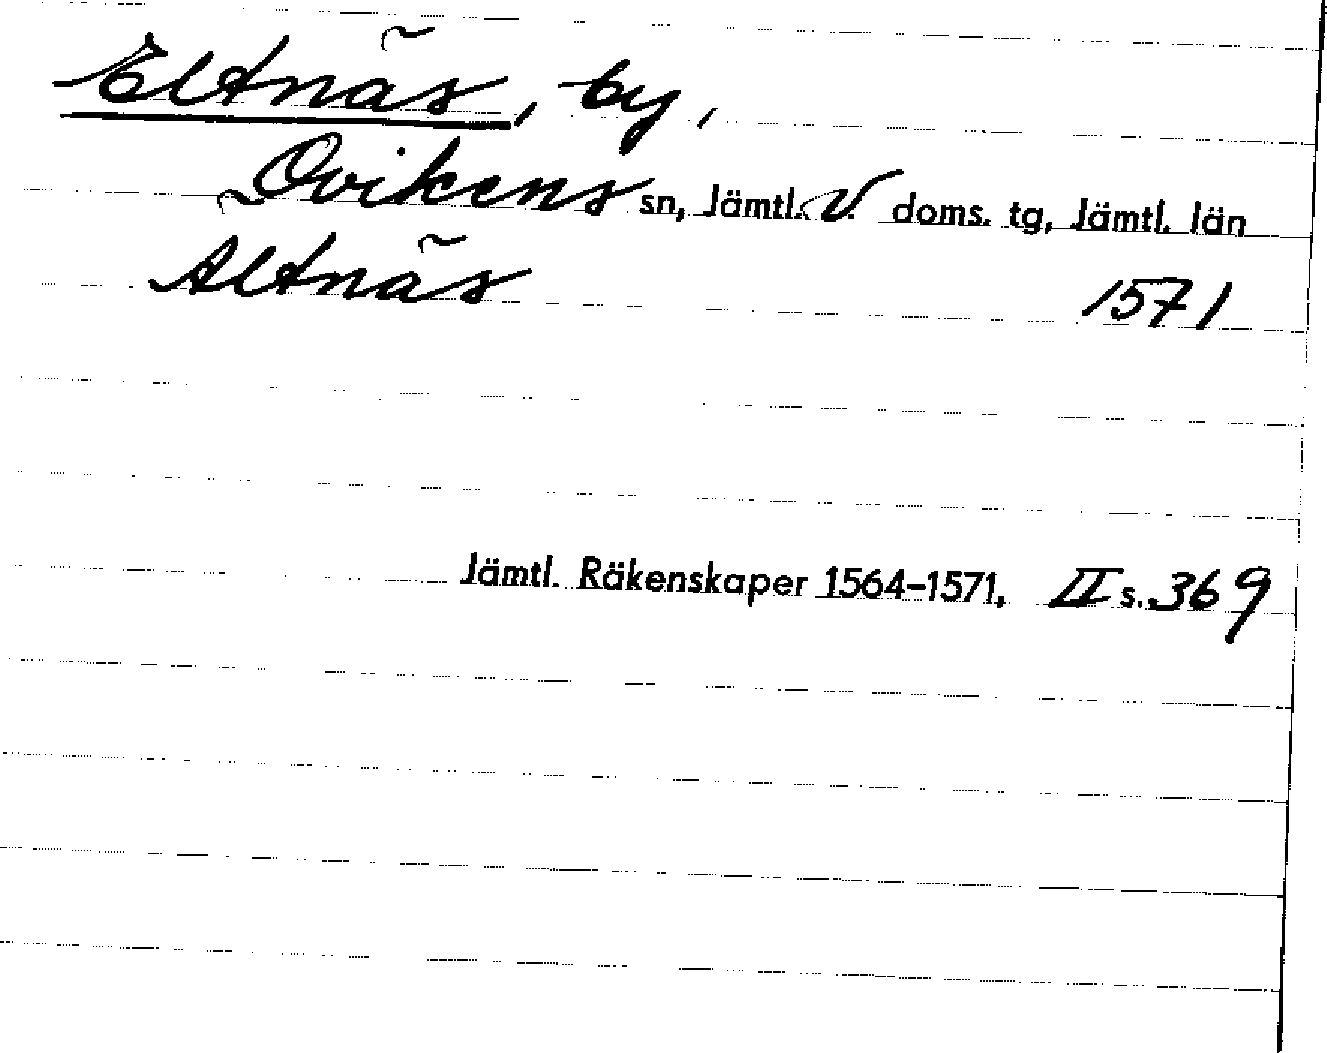 Eltnäs, by,
Ovikens sn, Jämtl. V. doms. tg, Jämtl. län
Altnäs 1571
Jämtl. Räkenskaper 1564-1571, II s. 369